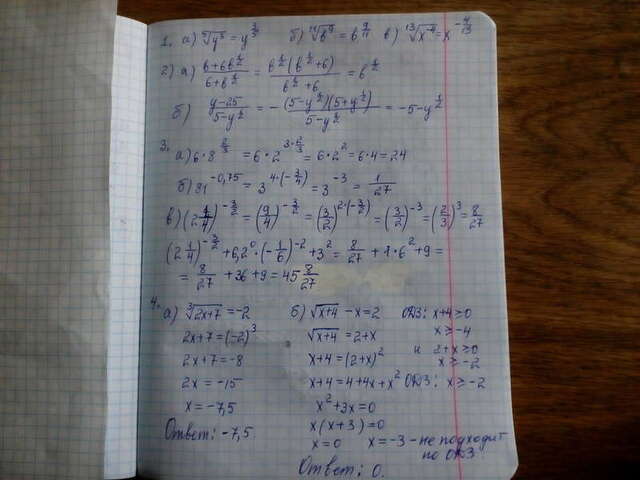 1. а) ⁵√y³ = y^(3/5) б) ¹¹√b⁹ = b^(9/11) в) ¹³√x⁻⁴ = x^(-4/13)
2) а) (b+6b^(1/2))/(6+b^(1/2)) = b^(1/2)(b^(1/2)+6)/(b^(1/2)+6) = b^(1/2)
б) (y-25)/(5-y^(1/2)) = -(5-y^(1/2))(5+y^(1/2))/(5-y^(1/2)) = -5-y^(1/2)
3. а) 6·8^(2/3) = 6·2^(3·2/3) = 6·2² = 6·4 = 24
б) 81^(-0,75) = 3^(4·(-3/4)) = 3⁻³ = 1/27
в) (2 1/4)^(-3/2) = (9/4)^(-3/2) = (3/2)^(2·(-3/2)) = (3/2)⁻³ = (2/3)³ = 8/27
(2 1/4)^(-3/2) + 6,2⁰·(-1/6)⁻² + 3² = 8/27 + 1·6² + 9 =
= 8/27 + 36 + 9 = 45 8/27
4. а) ³√(2x+7) = -2
2x+7 = (-2)³
2x+7 = -8
2x = -15
x = -7,5
Ответ: -7,5.
б) √(x+4) - x = 2 ОДЗ: x+4≥0
√(x+4) = 2+x x≥-4
и 2+x≥0
x+4 = (2+x)² x≥-2
x+4 = 4+4x+x² ОДЗ: x≥-2
x²+3x=0
x(x+3)=0
x=0 x=-3 - не подходит
по ОДЗ
Ответ: 0.